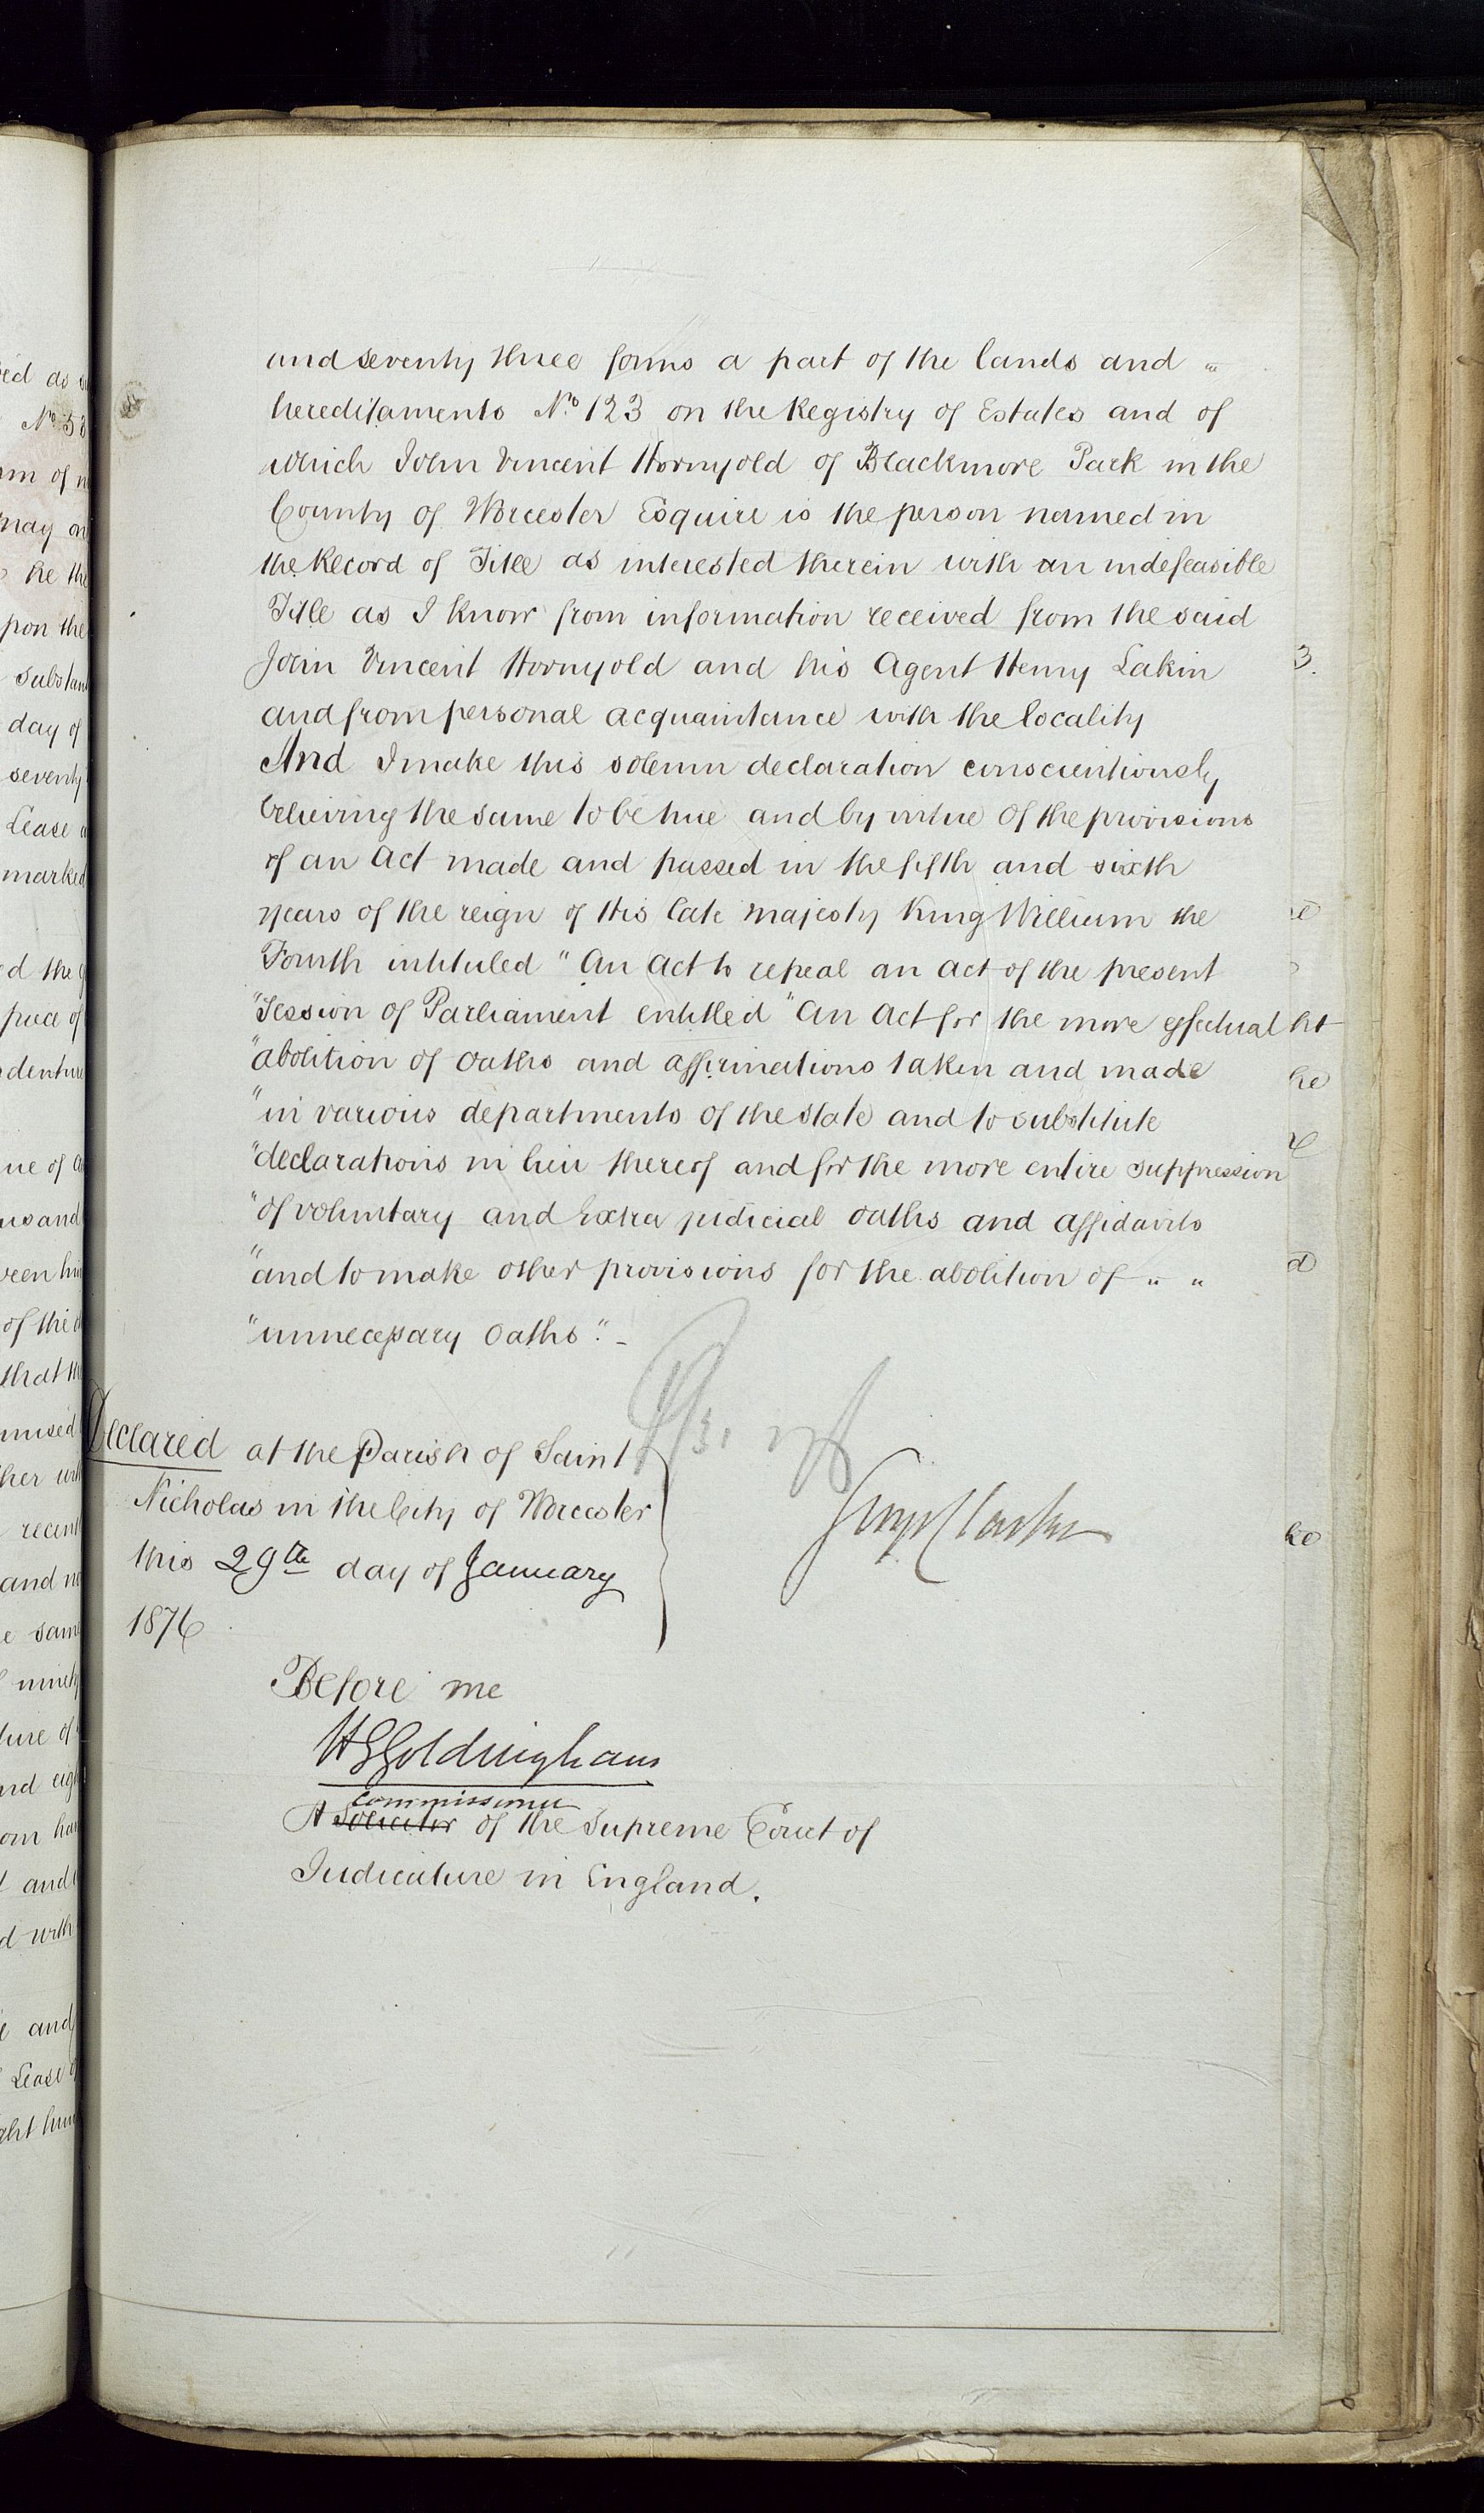 and seventy three forms a part of the lands and "
hereditaments No. 123 on the Registry of Estates and of
which John Vincent Hornyold of Blackmore Park in the
County of Worcester Esquire is the person named in
the Record of Title as interested therein with an indefeasible
Title as I know from information received from the said
John Vincent Hornyold and his Agent Henry Lakin
and from personal acquaintance with the locality
And I make this solemn declaration conscientiously
believing the same to be true and by virtue of the provisions
of an Act made and passed in the fifth and sixth
years of the reign of His late Majesty King William the
Fourth intituled "An Act to repeal an Act of the present
"Session of Parliament entitled "An Act for the more effectual
"abolition of oaths and affirmations taken and made
"in various departments of the State and to substitute
"declarations in lieu thereof and for the more entire suppression
"of voluntary and Extra judicial oaths and affidavits
"and to make other provisions for the abolition of " "
"unnecessary oaths". -
Declared at the Parish of Saint
Nicholas in the City of Worcester
this 29th day of January
1876
Before me
H G Goldingham
Commissioner
A Solicitor of the Supreme Court of
Judicature in England.
ed as
No. 58
may
the
upon the
day of
seventy
Lease
marked
ed the
denture
of the
that
recent
same
and
with
and
Lease
3.
he